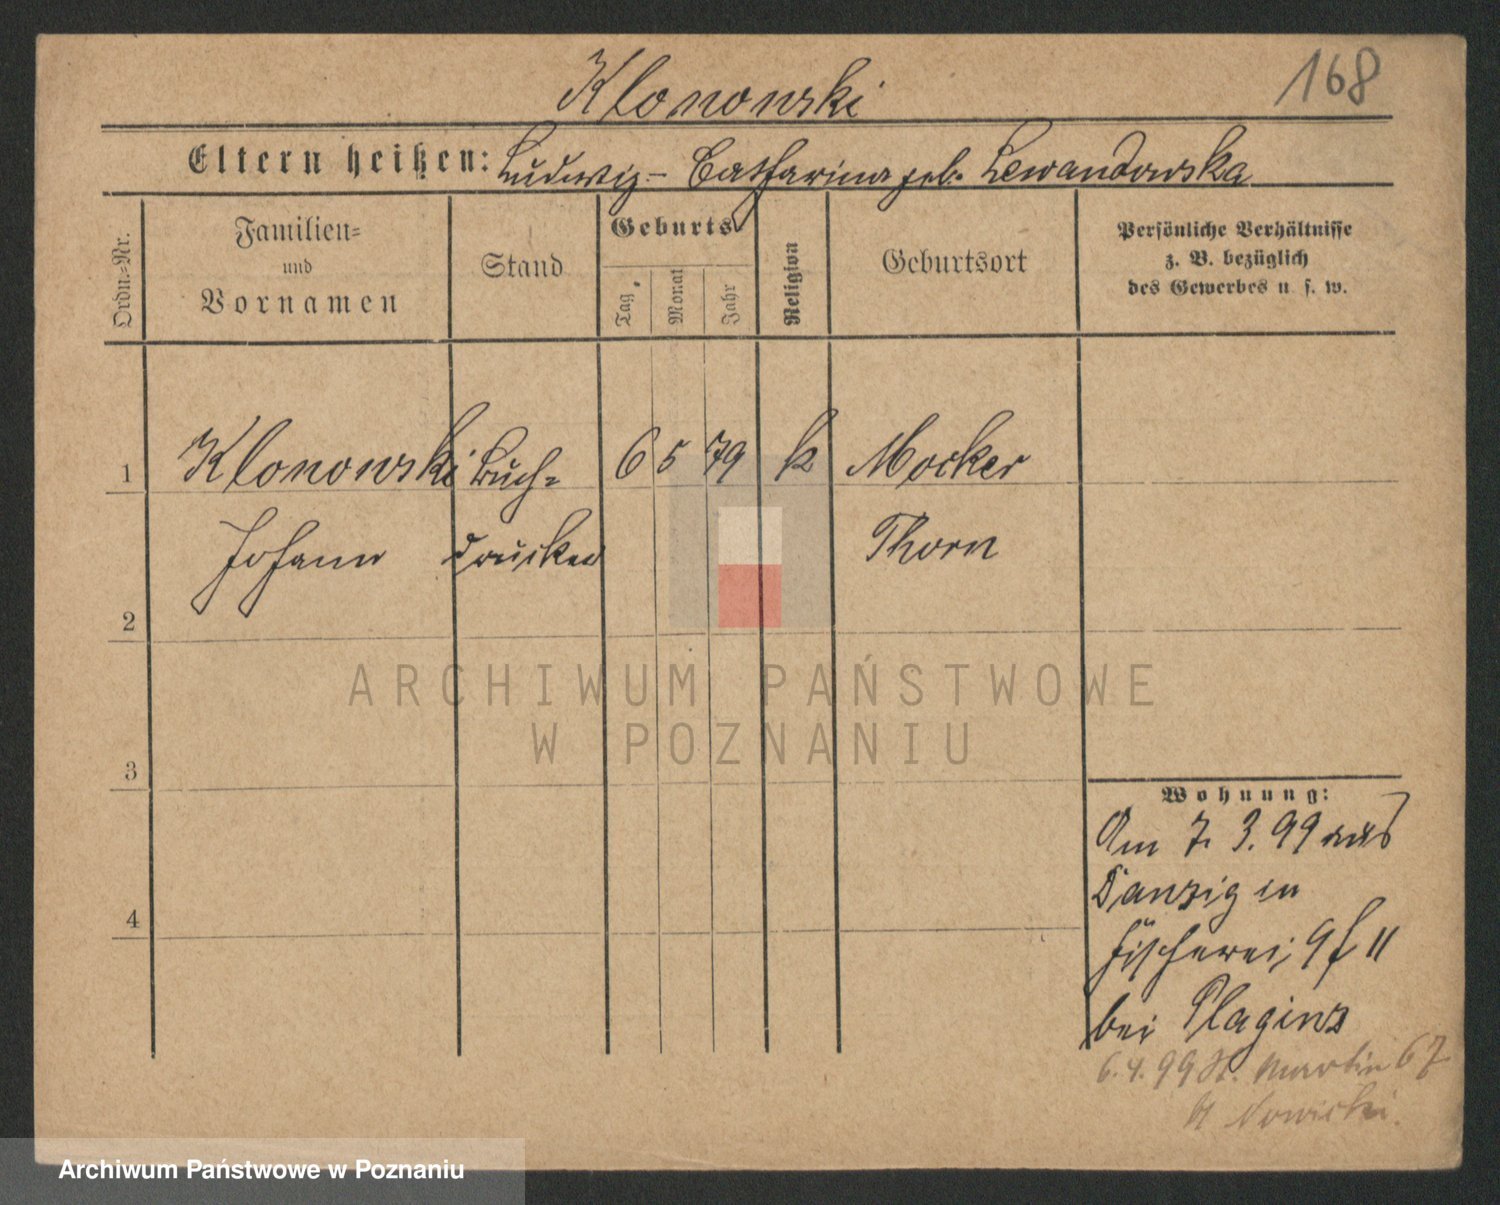 168
Klonowski
Eltern heißen: Ludwig – Catharina geb. Lewandowska
Ordn.-Nr.
Familien-
und
Vornamen
Stand
Geburts
Tag
Monat
Jahr
Religion
Geburtsort
Persönliche Verhältnisse
z. B. bezüglich
des Gewerbes u. s. w.
1 Klonowski Buch- 6 5 79 k Mocker
Johann drucker Thorn
2
3
4
Wohnung:
Am 7. 3. 99 aus
Danzig in
Fischerei 9 II
bei Plagins
6.4.99 St. Martin 67
Nowicki.
ARCHIWUM PAŃSTWOWE
W POZNANIU
Archiwum Państwowe w Poznaniu